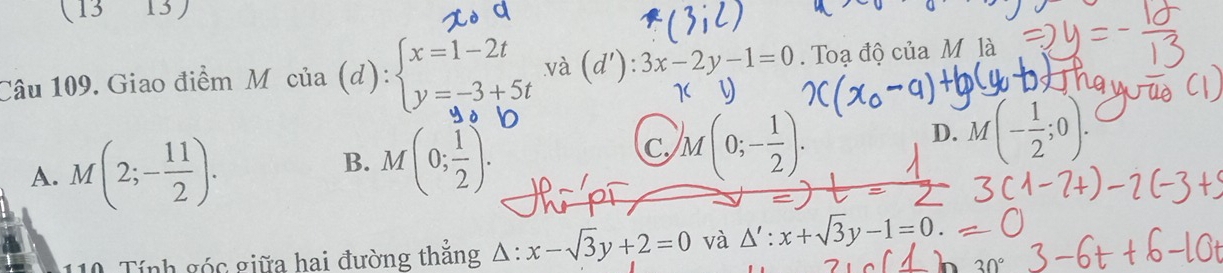 (13 13)
x₀ a *(3;2)
Câu 109. Giao điểm M của (d): {x = 1 - 2t và (d'): 3x - 2y - 1 = 0. Toạ độ của M là => y = -
y = -3 + 5t
13
y₀ b x y x(x₀ - a) + b(y₀ - b) Thay vào (1)
A. M(2; -11/2). B. M(0; 1/2). C. M(0; -1/2). D. M(-1/2; 0).
=> t = 1/2 3(1-2t) - 2(-3+5
110. Tính góc giữa hai đường thẳng Δ: x - √3y + 2 = 0 và Δ': x + √3y - 1 = 0. = 0
30° 3 - 6t + 6 - 10t